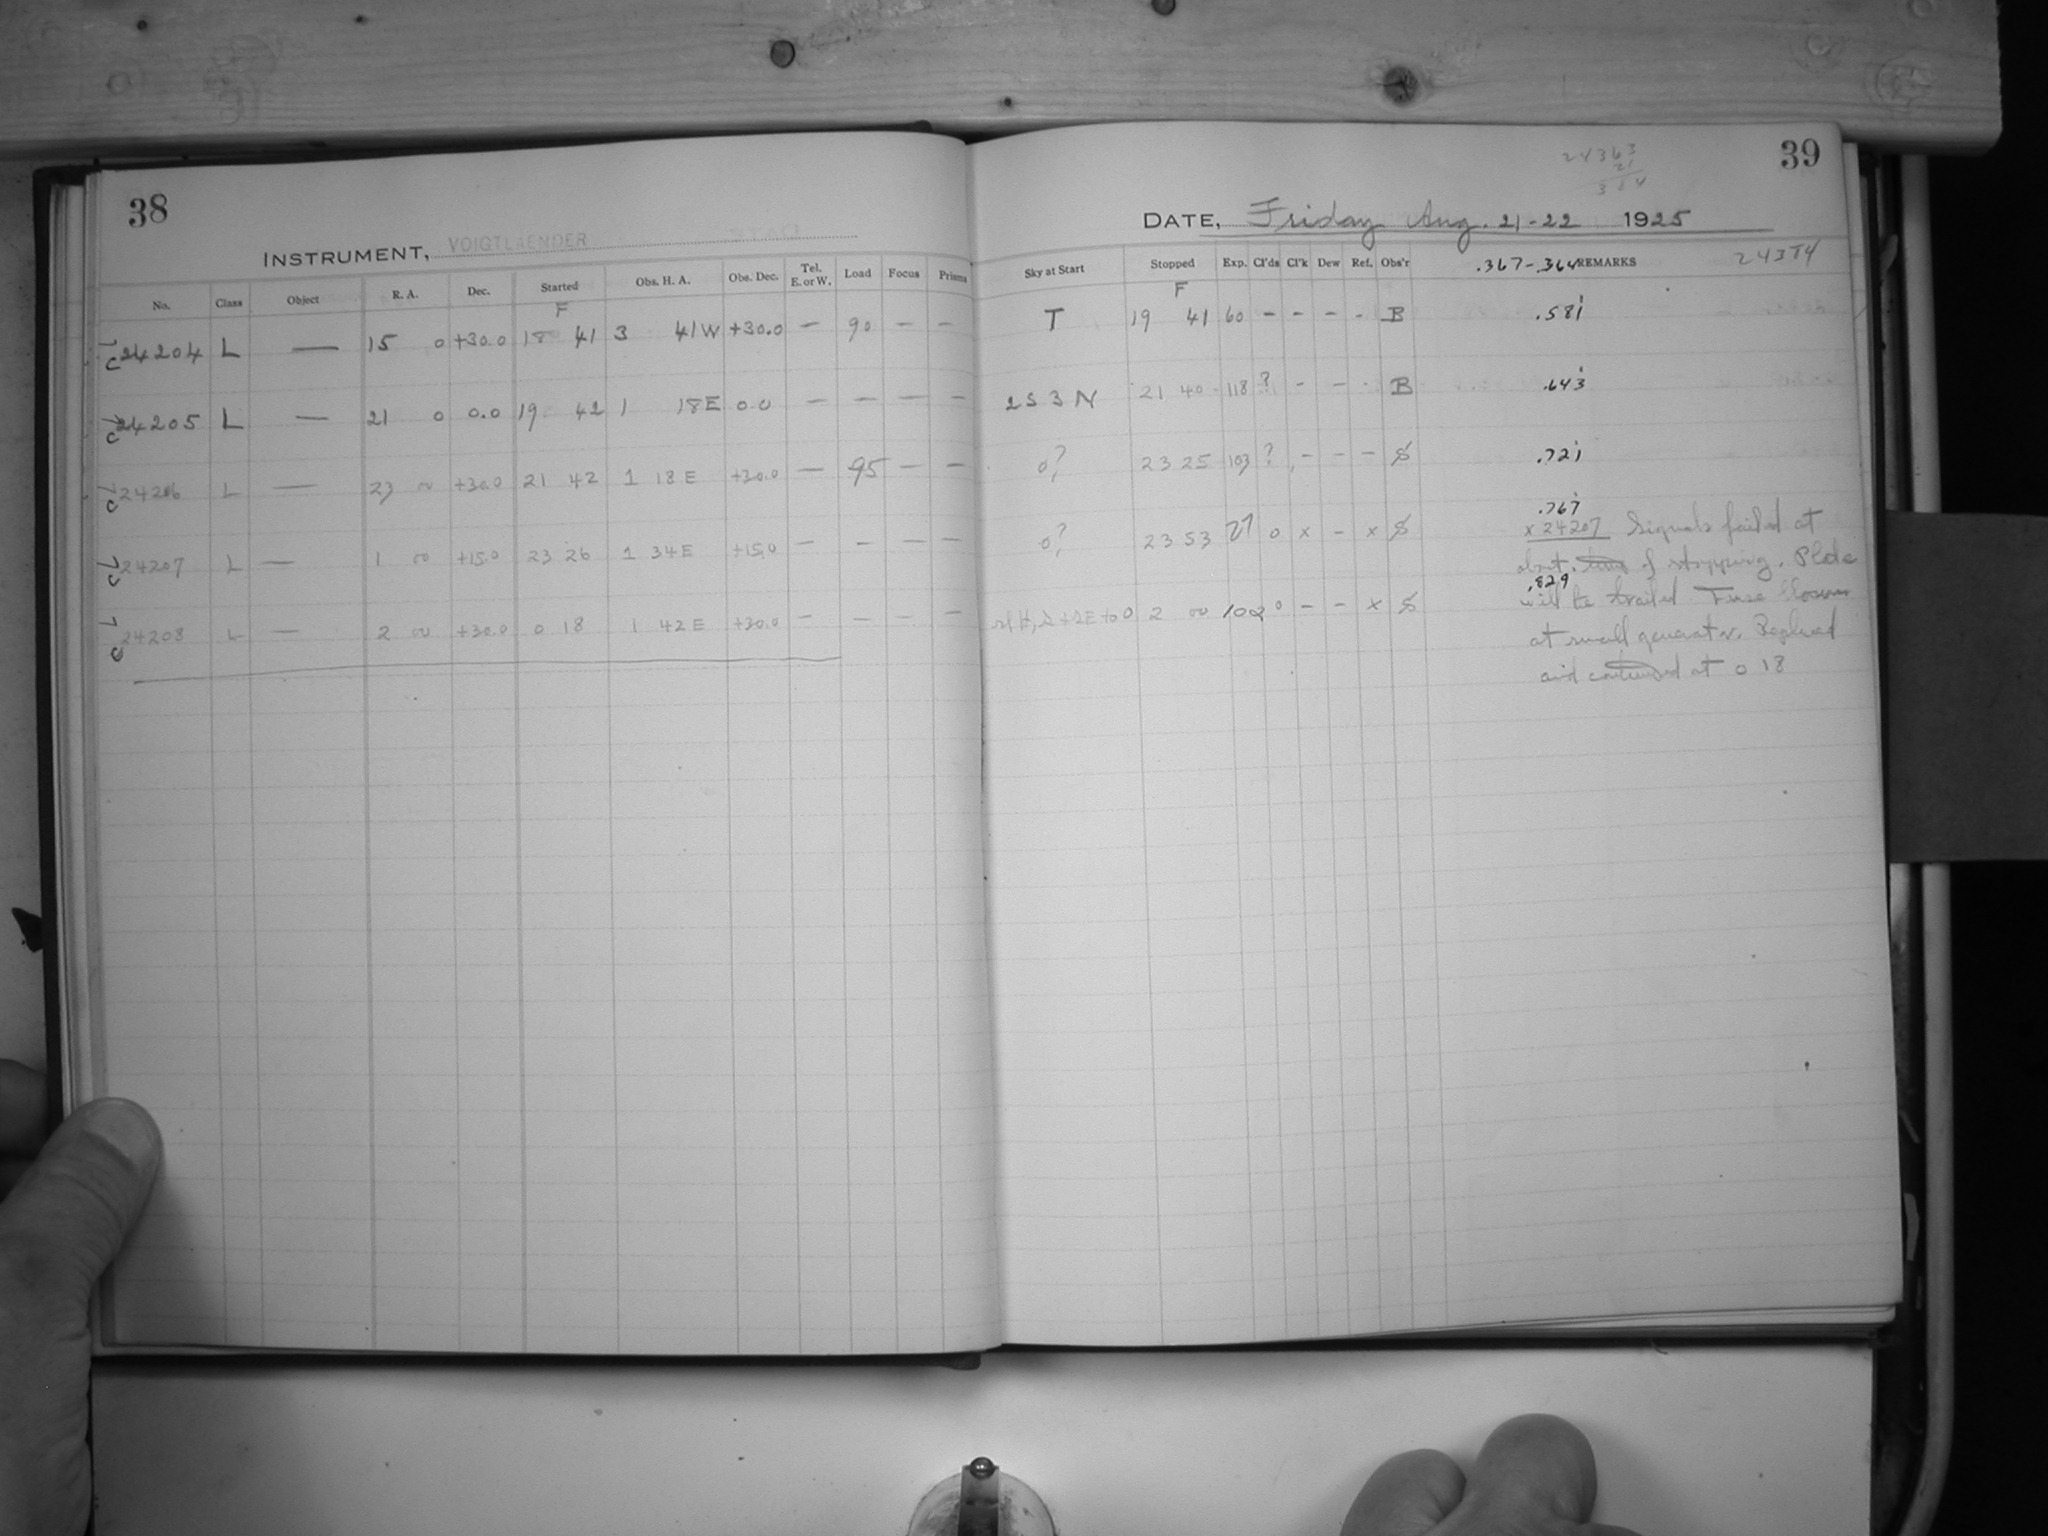 38
INSTRUMENT, VOIGTLAENDER
No. Class Object R. A. Dec. Started Obs. H. A. Obs. Dec. Tel. E. or W. Load Focus Prisms
F
24204 L — 15 0 +30.0 18 41 3 41W +30.0 — 90 — —
24205 L — 21 0 0.0 19 42 1 18E 0.0 — — — —
24206 L — 23 00 +30.0 21 42 1 18E +30.0 — 95 — —
24207 L — 1 00 +15.0 23 26 1 34E +15.0 — — — —
24208 L — 2 00 +30.0 0 18 1 42E +30.0 — — — —
39
24363
21
DATE, Friday Aug. 21-22 1925
Sky at Start Stopped Exp. Cl'ds Cl'k Dew Ref. Obs'r .367-.364 REMARKS
F
T 19 41 60 - - - - B .581
2S 3N 21 40 118 ? - - - B .643
0? 23 25 103 ? - - - S .721
0? 23 53 27 0 x - x S .767
x 24207 Signals failed at
about time of stopping. Plate
2 00 102 0 - - x S .829
will be trailed Fuse blown
at small generator. Replaced
and continued at 0 18